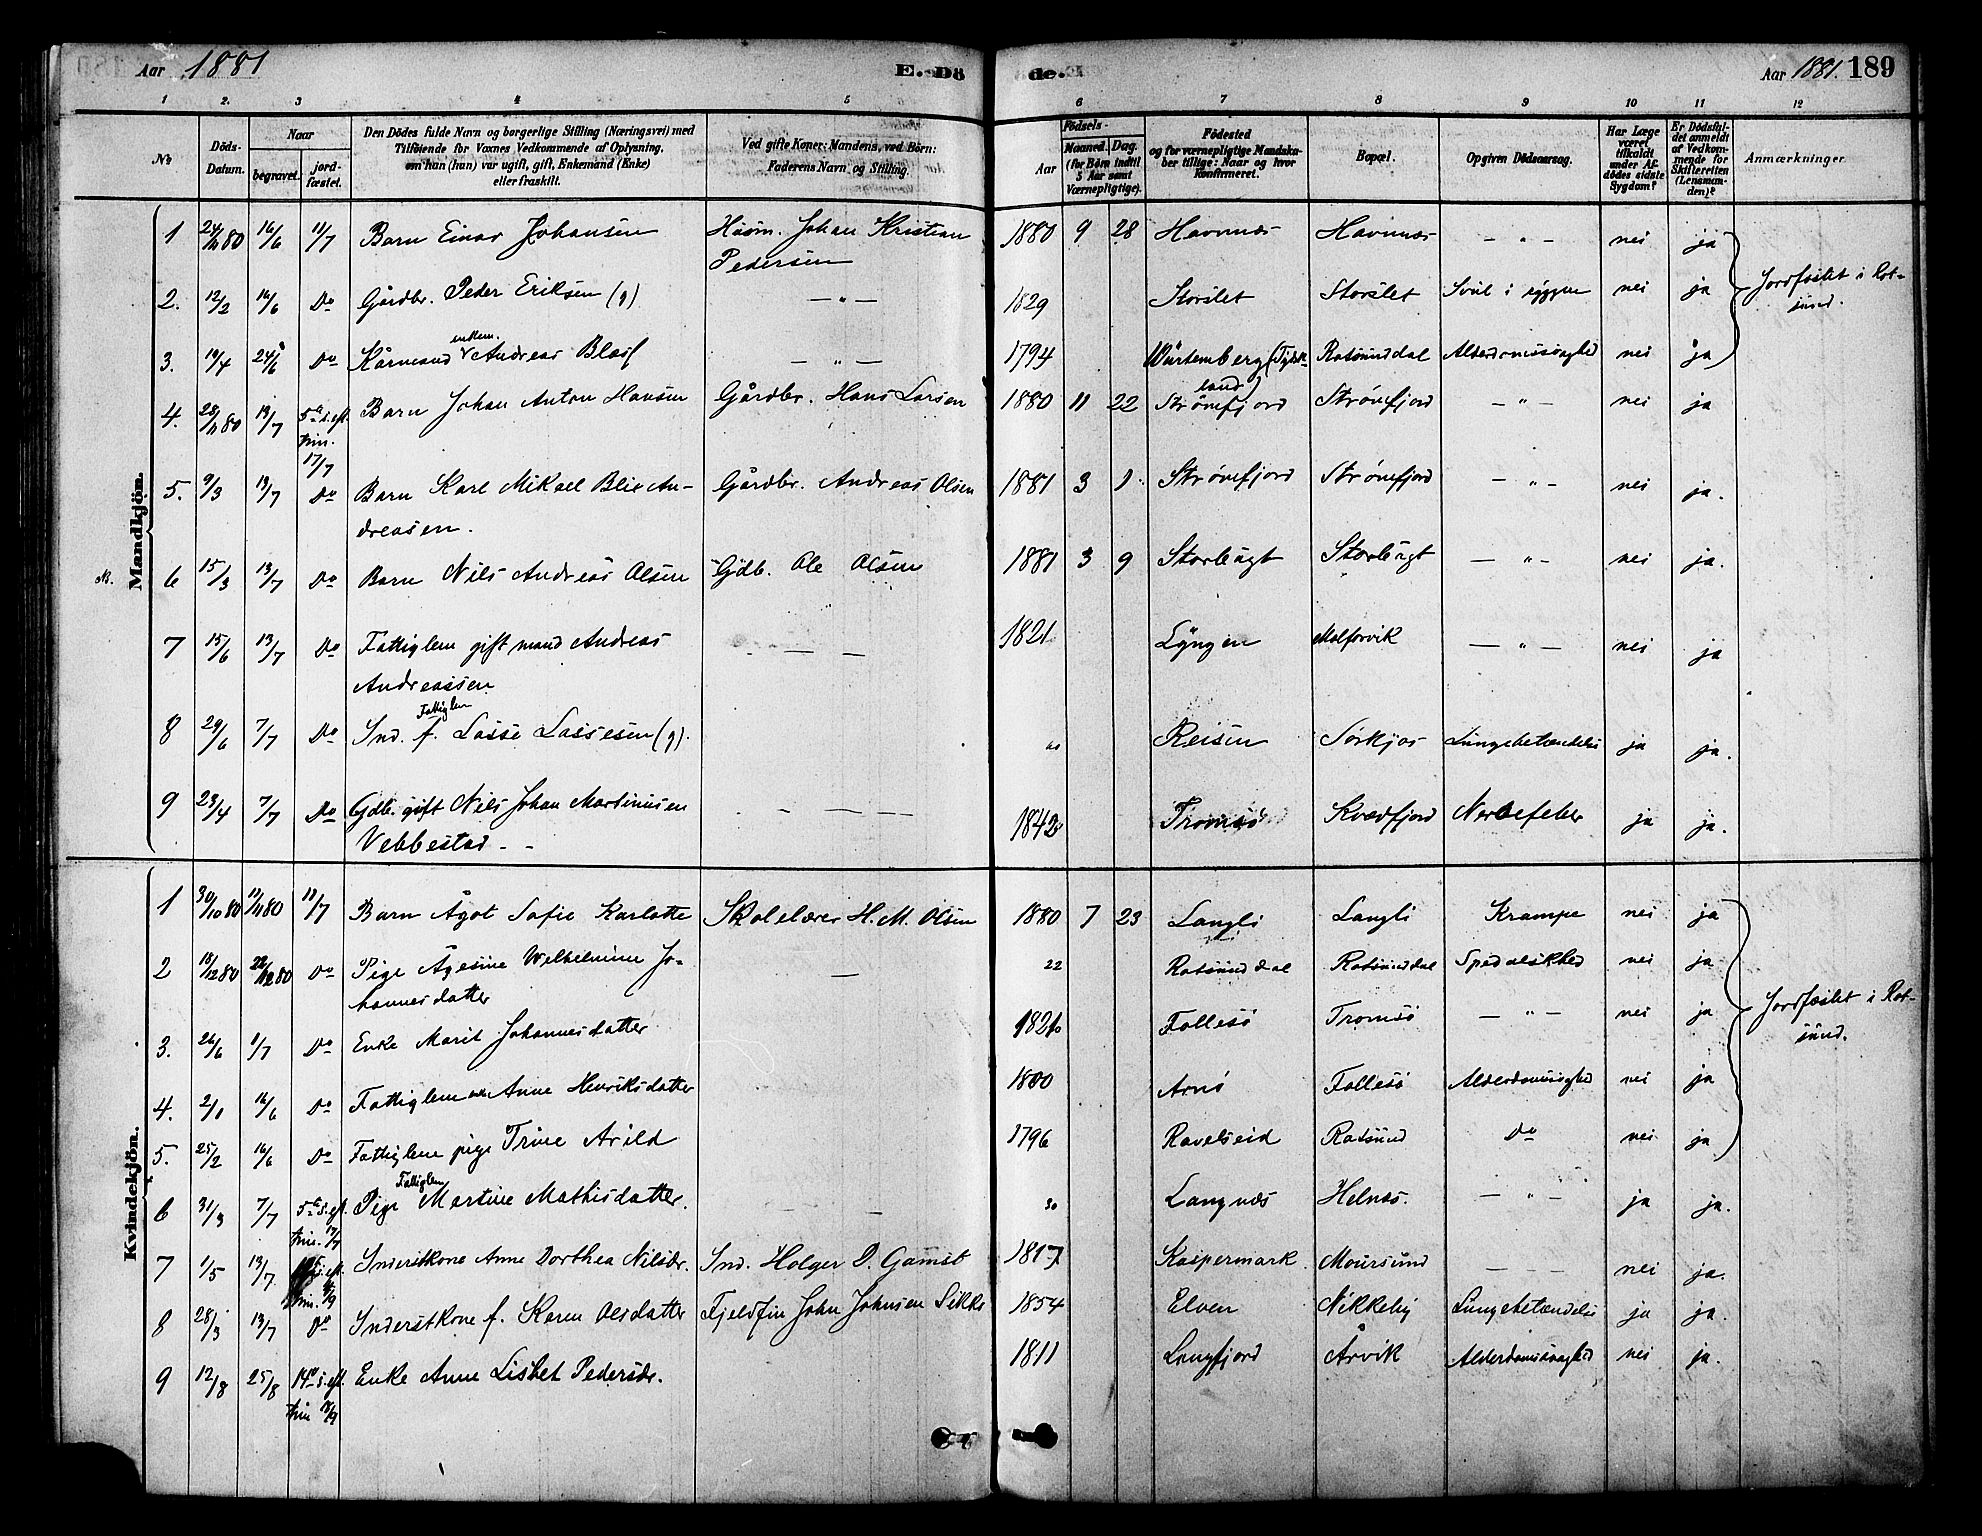 Aar 1881 E. Dö de. Aar 1881. 189
1 2. 3 4 5 6 7 8 9 10 11 12
No Döds-Datum. Naar begravet. jordfæstet. Den Dödes fulde Navn og borgerlige Stilling (Næringsvei) med Tilföiende for Voxnes Vedkommende af Oplysning, om han (hun) var ugift, gift, Enkemand (Enke) eller fraskilt. Ved gifte Koner: Mandens, ved Börn: Faderens Navn og Stilling. Födsels- Aar Maaned. Dag. (for Börn indtil 5 Aar samt Værnepligtige). Födested og for værnepligtige Mandskaber tillige: Naar og hvor Konfirmeret. Bopæl. Opgiven Dödsaarsag. Har Læge været tilkaldt under Afdödes sidste Sygdom? Er Dödsfaldet anmeldt af Vedkommende for Skifteretten (Lensmanden)? Anmærkninger.
Mandkjön.
1 24/11 80 16/6 11/7 Barn Einar Johansen Husm. Johan Kristian 1880 9 28 Havnnæs Havnnæs — " — nei ja
Pedersen
2. 12/2 16/6 Do Gårdbr. Peder Eriksen (g) — " — 1829 Storslet Storslet Svul i ryggen nei ja Jordfæstet i Rot-
sund.
enkem.
3. 19/4 24/6 Do Kårmand Andreas Blasf — " — 1794 Würtemberg (Tydsk- Rotsunddal Alderdomssvaghed nei ja
land)
4. 28/11 80 13/7 5te s. eft. Barn Johan Anton Hansen Gårdbr. Hans Larsen 1880 11 22 Strømfjord Strømfjord — " — nei ja
trin.
17/7
5. 9/3 13/7 Do Barn Karl Mikael Blix An- Gårdbr. Andreas Olsen 1881 3 1 Strømfjord Strømfjord — " — nei ja.
dreasen.
6 15/3 13/7 Do Barn Nils Andreas Olsen Gdb. Ole Olsen 1881 3 9 Storbugt Storbugt — " — nei ja.
7 15/6 13/7 Do Fattiglem gift mand Andreas — — 1821 Lyngen Molforvik — " — nei ja
Andreassen
Fattiglem
8 29/6 7/7 Do Ind. f. Lasse Lassesen (g). " Reisen Sørkjos Lungebetændelse ja ja.
9 23/4 7/7 Do Gdb. gift Nils Johan Martinusen — — — 1842 Tromsø Kvædfjord Nervefeber ja ja.
Vebbestad - -
Kvindekjön.
1 30/10 80 12/11 80 11/7 Barn Ågot Sofie Karlotte Skolelærer H. M. Olsen 1880 7 23 Langli Langli Krampe nei ja
2 18/12 80 22/12 80 Do Pige Ågesine Wilhelmine Jo- — 22 Rotsunddal Rotsunddal Spedalskhed nei ja
hannesdatter
3. 26/6 1/7 Do Enke Marit Johannesdatter 1821 Follesø Tromsø — " — nei ja Jordfæstet i Rot-
sund.
4. 2/1 16/6 Do Fattiglem Anne Henriksdatter 1800 Arnø Follesø Alderdomssvaghed nei ja
5. 25/2 16/6 Do Fattiglem pige Trine Arild 1796 Ravelseid Rotsund Do nei ja
Fattiglem
6 31/3 7/7 5te s. eft. Pige Martine Mathisdatter. — — 30 Langnæs Helnæs. — " — ja ja.
trin. 17/7
7 1/5 13/7 s. eft. Inderstkone Anne Dorthea Nilsdr. Ind. Holger D. Gamst 1817 Kaspermark Maursund — — — nei ja.
trin. 4/9
8 28/3 13/7 Do Inderstkone f. Karen Olsdatter Fjeldfin John Johnsen Sikke 1854 Elven Nikkeby Lungebetændelse ja ja.
9 12/8 25/8 14de s. eft. Enke Anne Lisbet Pedersdr. 1811 Langfjord Årvik Alderdomssvaghed nei ja.
trin 18/9